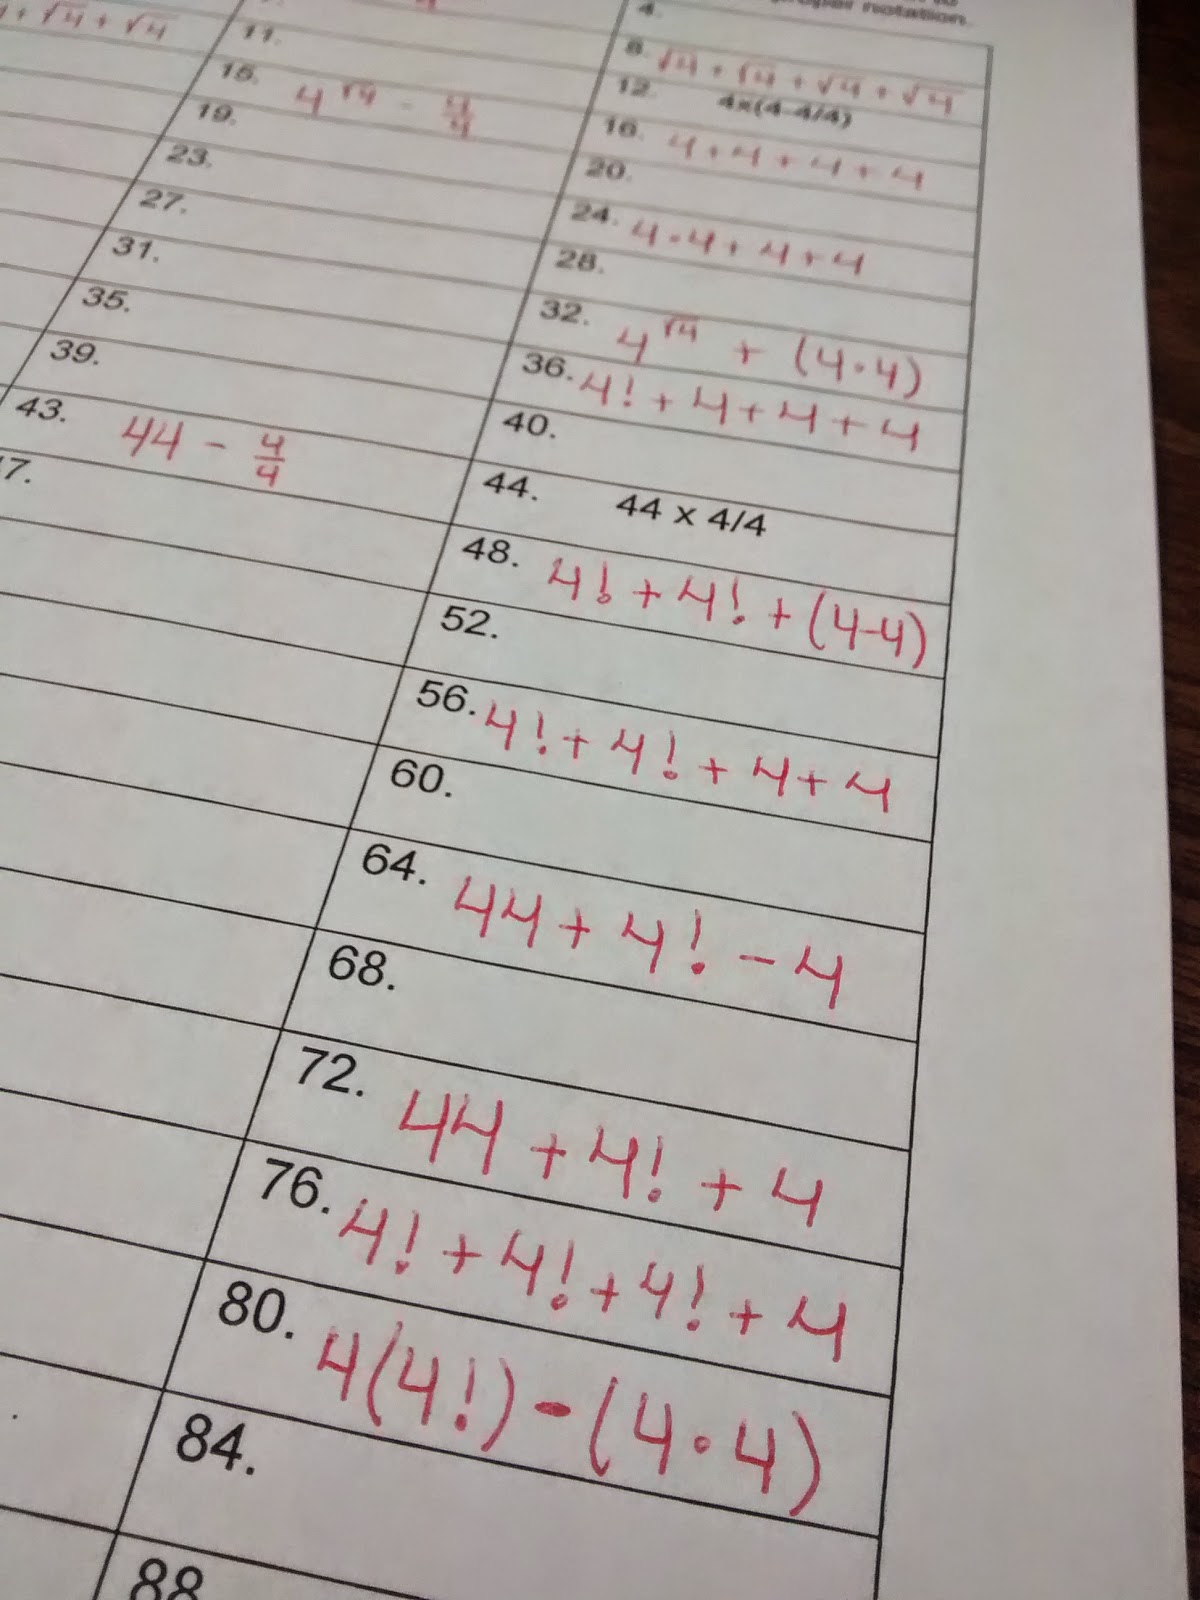 proper notation.
4.
√4 + √4
11.
8. √4 + √4 + √4 + √4
15. 4^√4 - 4/4
12. 4x(4-4/4)
19.
16. 4 + 4 + 4 + 4
23.
20.
27.
24. 4 · 4 + 4 + 4
31.
28.
35.
32. 4^√4 + (4 · 4)
39.
36. 4! + 4 + 4 + 4
43. 44 - 4/4
40.
7.
44. 44 x 4/4
48. 4! + 4! + (4-4)
52.
56. 4! + 4! + 4 + 4
60.
64. 44 + 4! - 4
68.
72. 44 + 4! + 4
76. 4! + 4! + 4! + 4
80. 4(4!) - (4 · 4)
84.
88